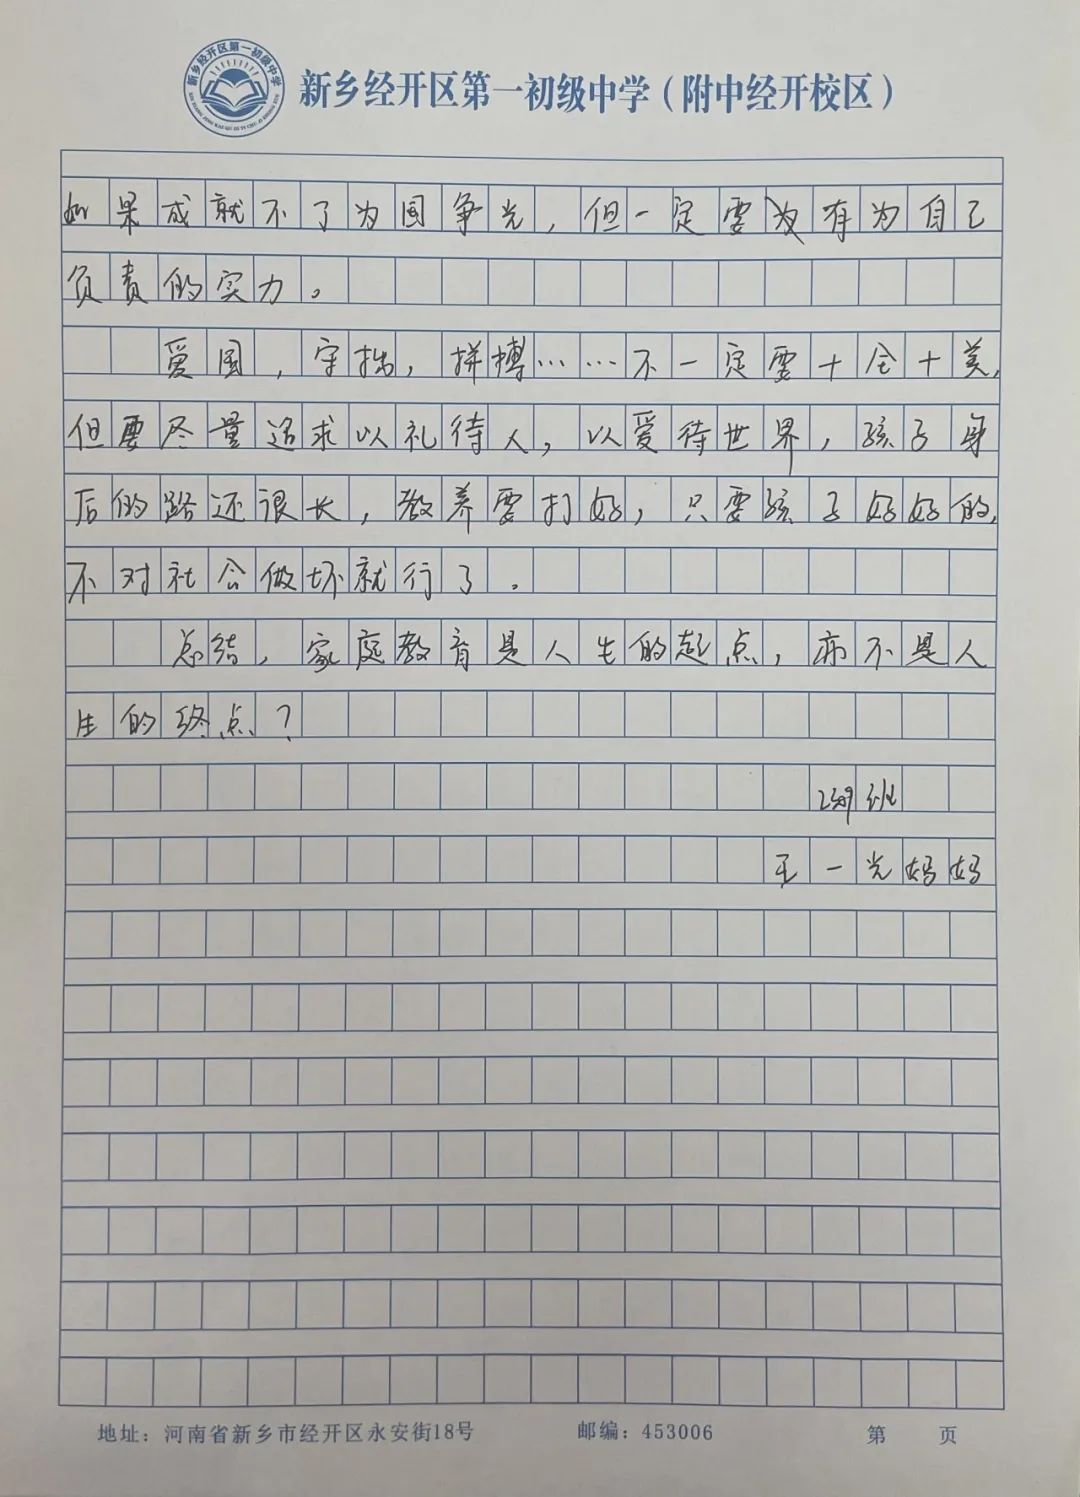 新乡经开区第一初级中学
新乡经开区第一初级中学（附中经开校区）
如果成就不了为国争光，但一定要有为自己
负责的实力。
爱国，守拙，拼搏……不一定要十全十美，
但要尽量追求以礼待人，以爱待世界，孩子身
后的路还很长，教养要打好，只要孩子好好的，
不对社会做坏就行了。
总结，家庭教育是人生的起点，亦不是人
生的终点？
班
王一光妈妈
地址：河南省新乡市经开区永安街18号 邮编：453006 第 页